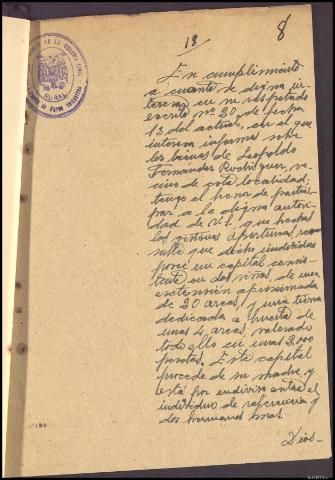 8
18
En cumplimiento
a cuanto se digna in-
teresar en su respetado
escrito nº 20 de fecha
13 del actual, en el que
interesa informe sobre
los bienes de Leopoldo
Fernandez Rodriguez, ve-
cino de esta localidad,
tengo el honor de partici-
par a la digna autori-
dad de V.S. que hechas
las gestiones oportunas re-
sulta que dicho individuo
posee un capital consis-
tente en dos viñas de una
extensión aproximada
de 20 areas, y una tierra
dedicada a huerta de
unas 4 areas, valorado
todo ello en unas 2.000
pesetas. Este capital
procede de su madre, y
está por indiviso entre el
individuo de referencia y
dos hermanos mas.
Dios-
GUARDIA CIVIL
RURAL